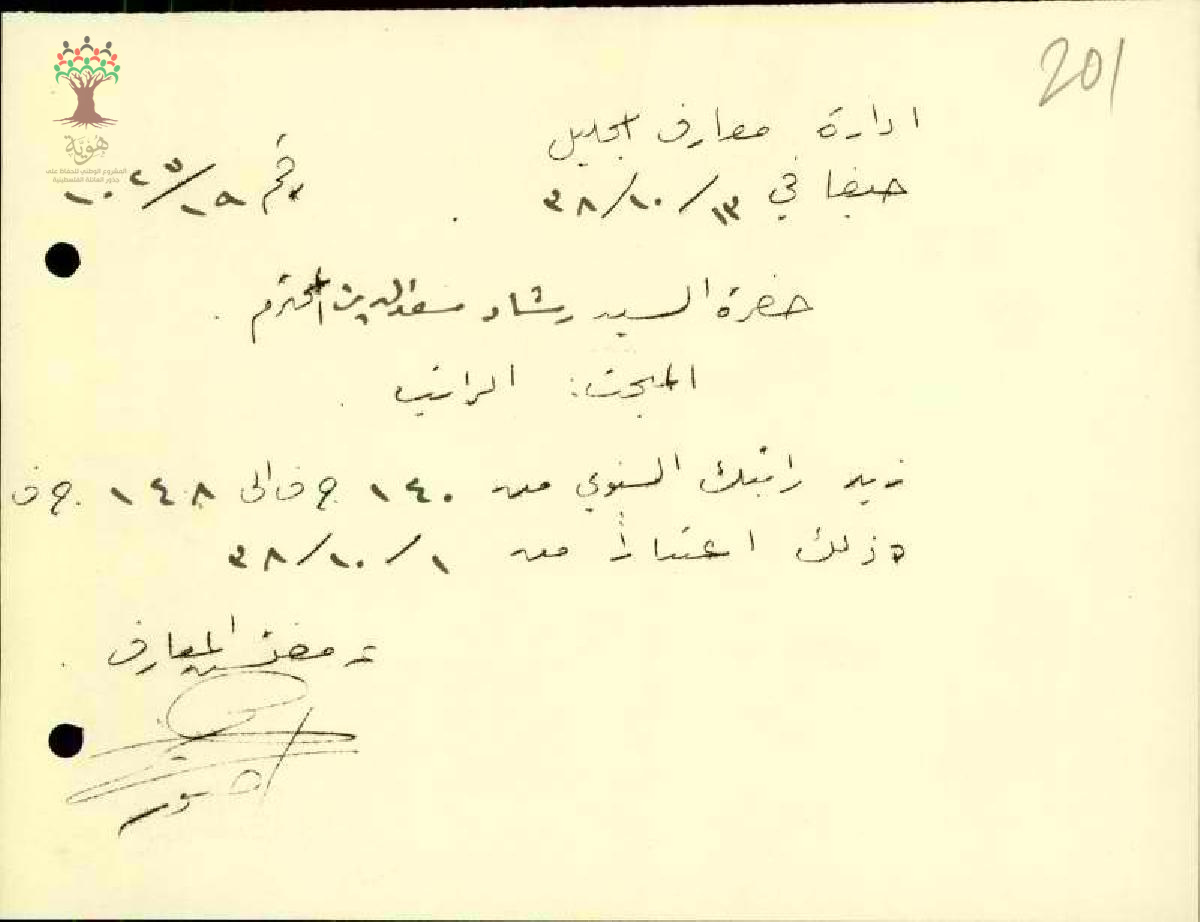 201
ادارة معارف الجليل
حيفا في ١٣/١٠/٣٨
رقم ١٩/
حضرة السيد رشاد سعد الدين المحترم
المبحث: الراتب
زيد راتبك السنوي من ١٤٠ ج ف الى ١٤٨ ج ف
وذلك اعتباراً من ١/١٠/٣٨
عن مفتش المعارف
هُوِيَّة
المشروع الوطني للحفاظ على
جذور العائلة الفلسطينية